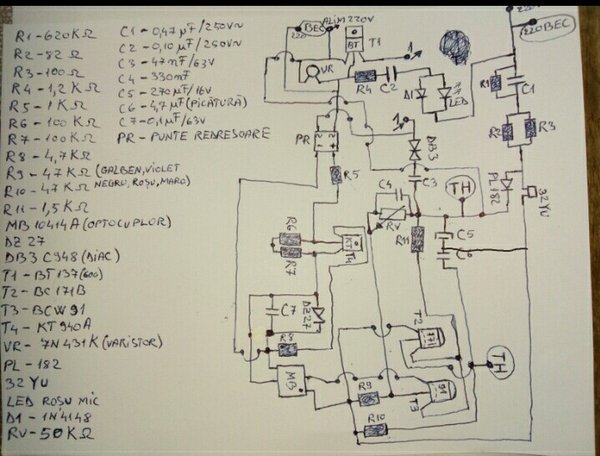 R1-620KΩ
R2-82Ω
R3-100Ω
R4-1,2KΩ
R5-1KΩ
R6-100KΩ
R7-100KΩ
R8-4,7KΩ
R9-47KΩ (GALBEN, VIOLET
R10-47KΩ NEGRO, ROSU, MARO)
R11-1,5KΩ
MB10414A (OPTOCUPLOR)
DZ 27
DB3 C948 (DIAC)
T1-BT137(600)
T2-BC171B
T3-BCW91
T4-KT940A
VR-7N431K (VARISTOR)
PL-182
32YU
LED ROȘU MIC
D1-1N4148
RV-50KΩ
C1-0,47µF/250V~
C2-0,10µF/250V~
C3-47nF/63V
C4-330nF
C5-270µF/16V
C6-4,7µF (PICĂTURĂ)
C7-0,1µF/63V
PR-PUNTE REDRESOARE
BEC
220
ALIM 220V
BT
T1
VR
1
R4
C2
D1
LED
220
220 BEC
R1
C1
R2
R3
PR
1
DB3
R5
C3
C4
RV
TH
PL182
32YU
R11
C5
C6
R6
R7
KT
T4
C7
DZ27
R8
T2
171
TH
MB
R9
91
T3
R10